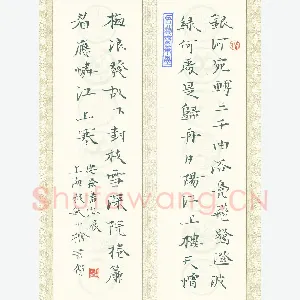 銀河宛轉三千曲浴鳧飛鷺澄波
綠何處是歸舟夕陽江上樓天憎
梅浪發故下封枝雪深院捲簾
看應憐江上寒
Shufawang.CN